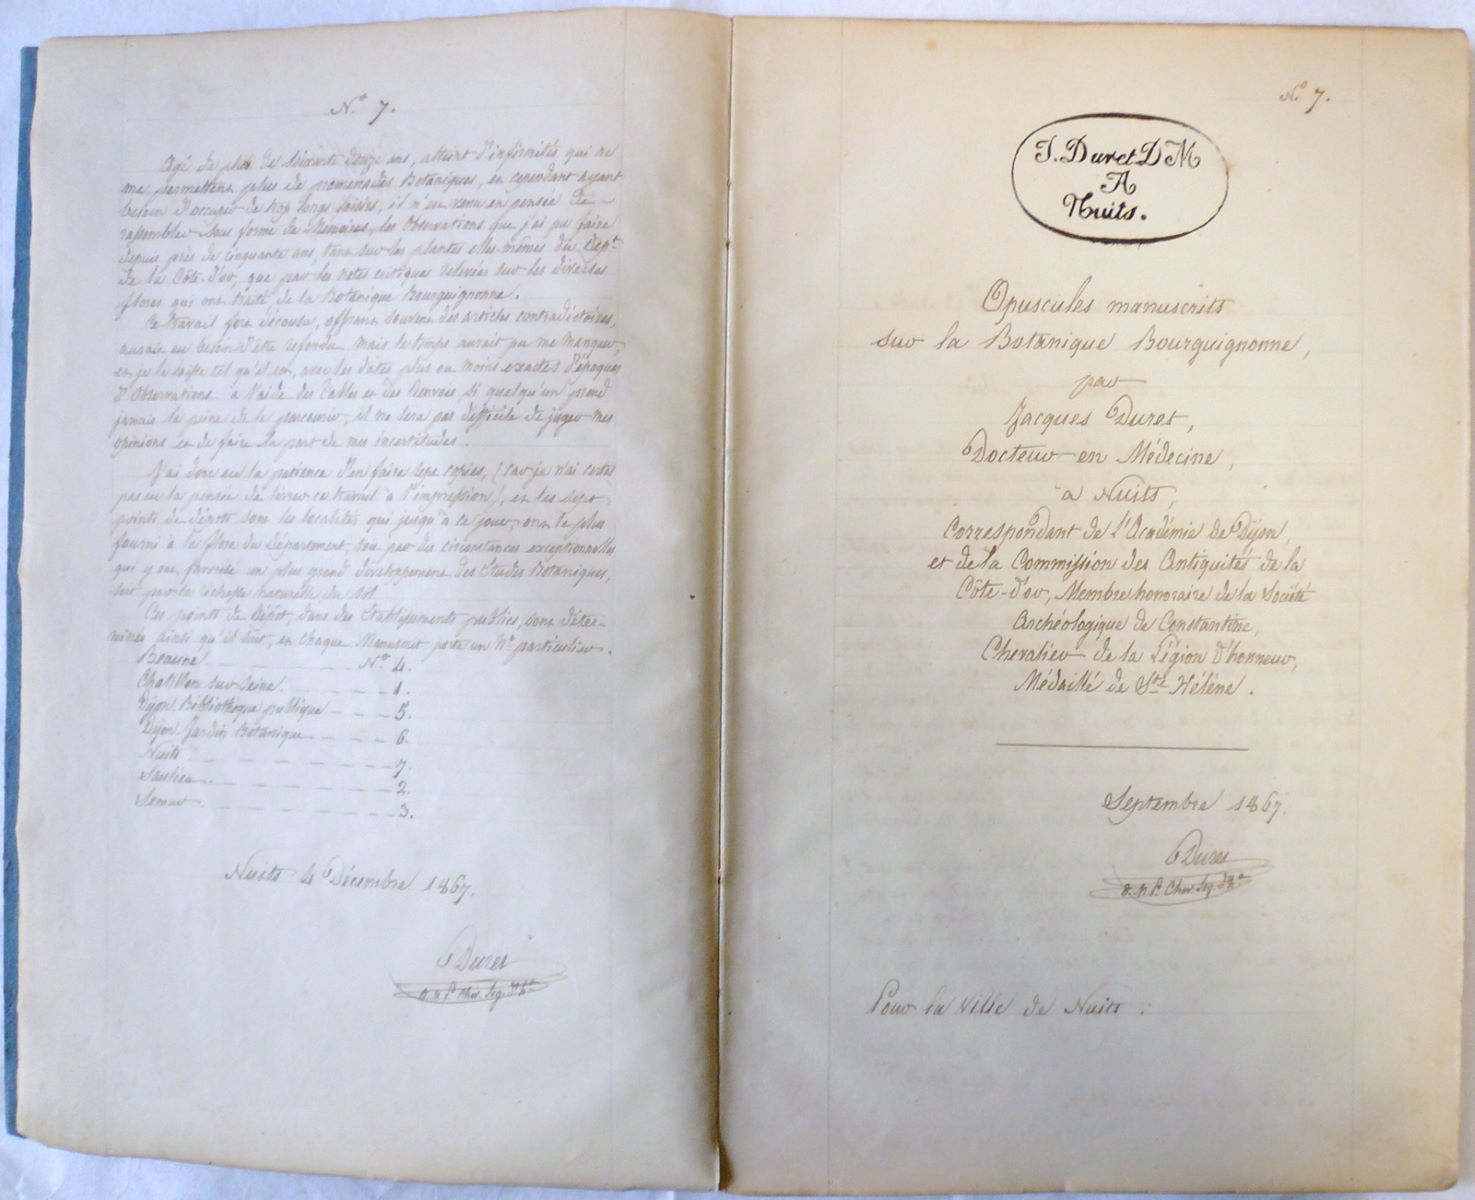 N.° 7.
Agé de plus de soixante douze ans, atteint d'infirmités qui ne
me permettent plus de promenades Botaniques, et cependant ayant
besoin d'occuper de trop longs loisirs, il m'est venu en pensée de
rassembler sous forme de Mémoires, les Observations que j'ai pu faire
depuis près de cinquante ans, tant sur les plantes elles-mêmes du Dép.t
de la Côte-d'or, que par les notes critiques relevées sur les diverses
flores qui ont traité de la Botanique Bourguignonne.
Ce travail fort décousu, offrant souvent des articles contradictoires,
aurait eu besoin d'être refondu, mais le temps aurait pu me manquer,
et je le laisse tel qu'il est, avec les dates plus ou moins exactes d'époques
d'Observations. à l'aide des Tables et des Renvois, si quelqu'un prend
jamais la peine de le parcourir, il ne sera pas difficile de juger mes
opinions et de faire la part de mes incertitudes.
J'ai donc eu la patience d'en faire sept copies, (car je n'ai certes
pas eu la pensée de livrer ce travail à l'impression), et les sept
points de dépôts sont les localités qui jusqu'à ce jour, ont le plus
fourni à la flore du Département, soit par des circonstances exceptionnelles
qui y ont favorisé un plus grand développement des Etudes Botaniques,
soit par la richesse naturelle du sol.
Ces points de Dépôt, dans des Etablissements publics, sont déter-
minés ainsi qu'il suit, et chaque Manuscrit porte un N.° particulier.
Beaune N.° 4.
Chatillon sur Seine. 1.
Dijon Bibliothèque publique 5.
Dijon Jardin Botanique 6.
Nuits 7.
Saulieu. 2.
Semur. 3.
Nuits 4 Décembre 1867.
Duret
D. M. P. Chev. Lég. d'h.r
N.° 7.
J. Duret D M
A
Nuits.
Opuscules manuscrits
sur la Botanique Bourguignonne,
par
Jacques Duret,
Docteur en Médecine,
a Nuits,
Correspondant de l'Académie de Dijon,
et de la Commission des Antiquités de la
Côte-d'or, Membre honoraire de la Société
Archéologique de Constantine,
Chevalier de la Légion d'honneur,
Médaillé de S.te Hélène.
Septembre 1867.
Duret
D. M. P. Chev. Lég. d'h.r
Pour la Ville de Nuits.